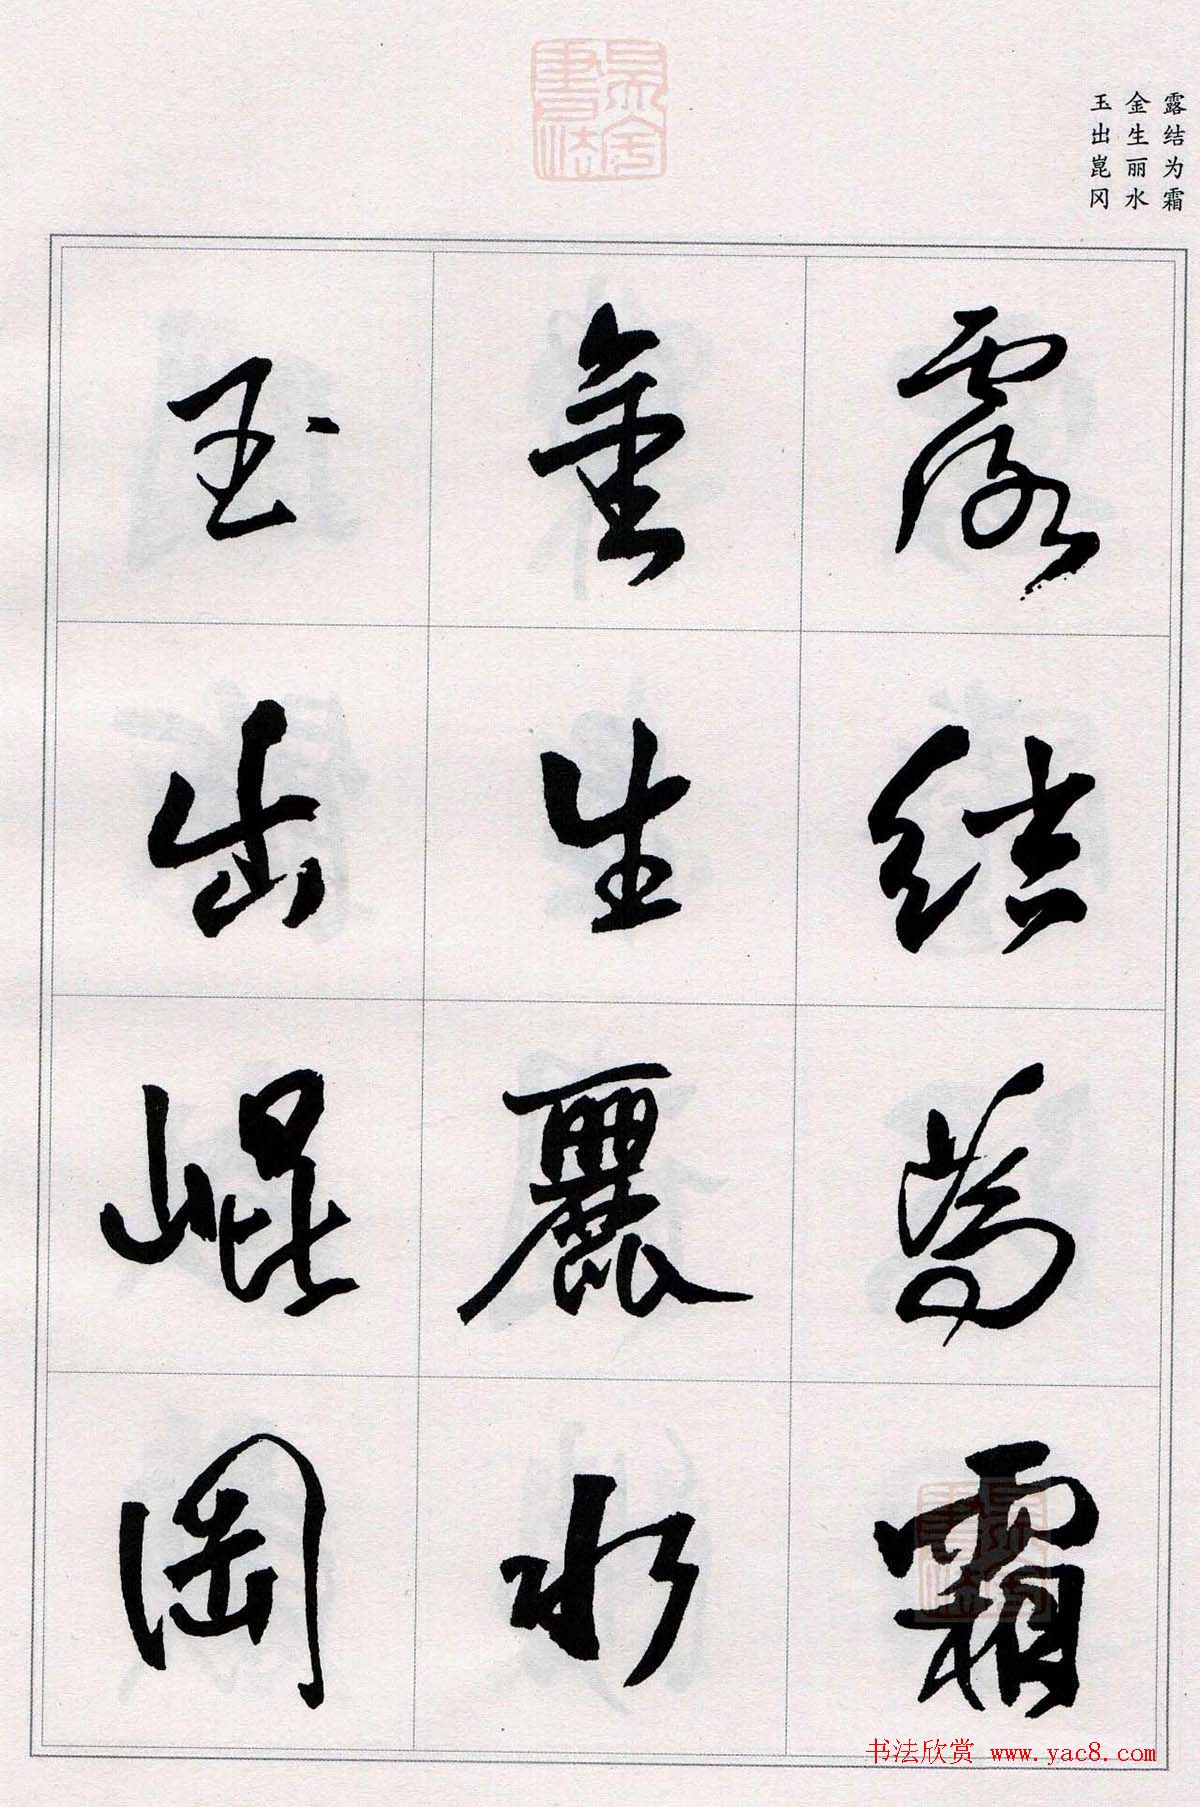 露结为霜
金生丽水
玉出崑冈
露結為霜
金生麗水
玉出崐岡
书法欣赏 www.yac8.com